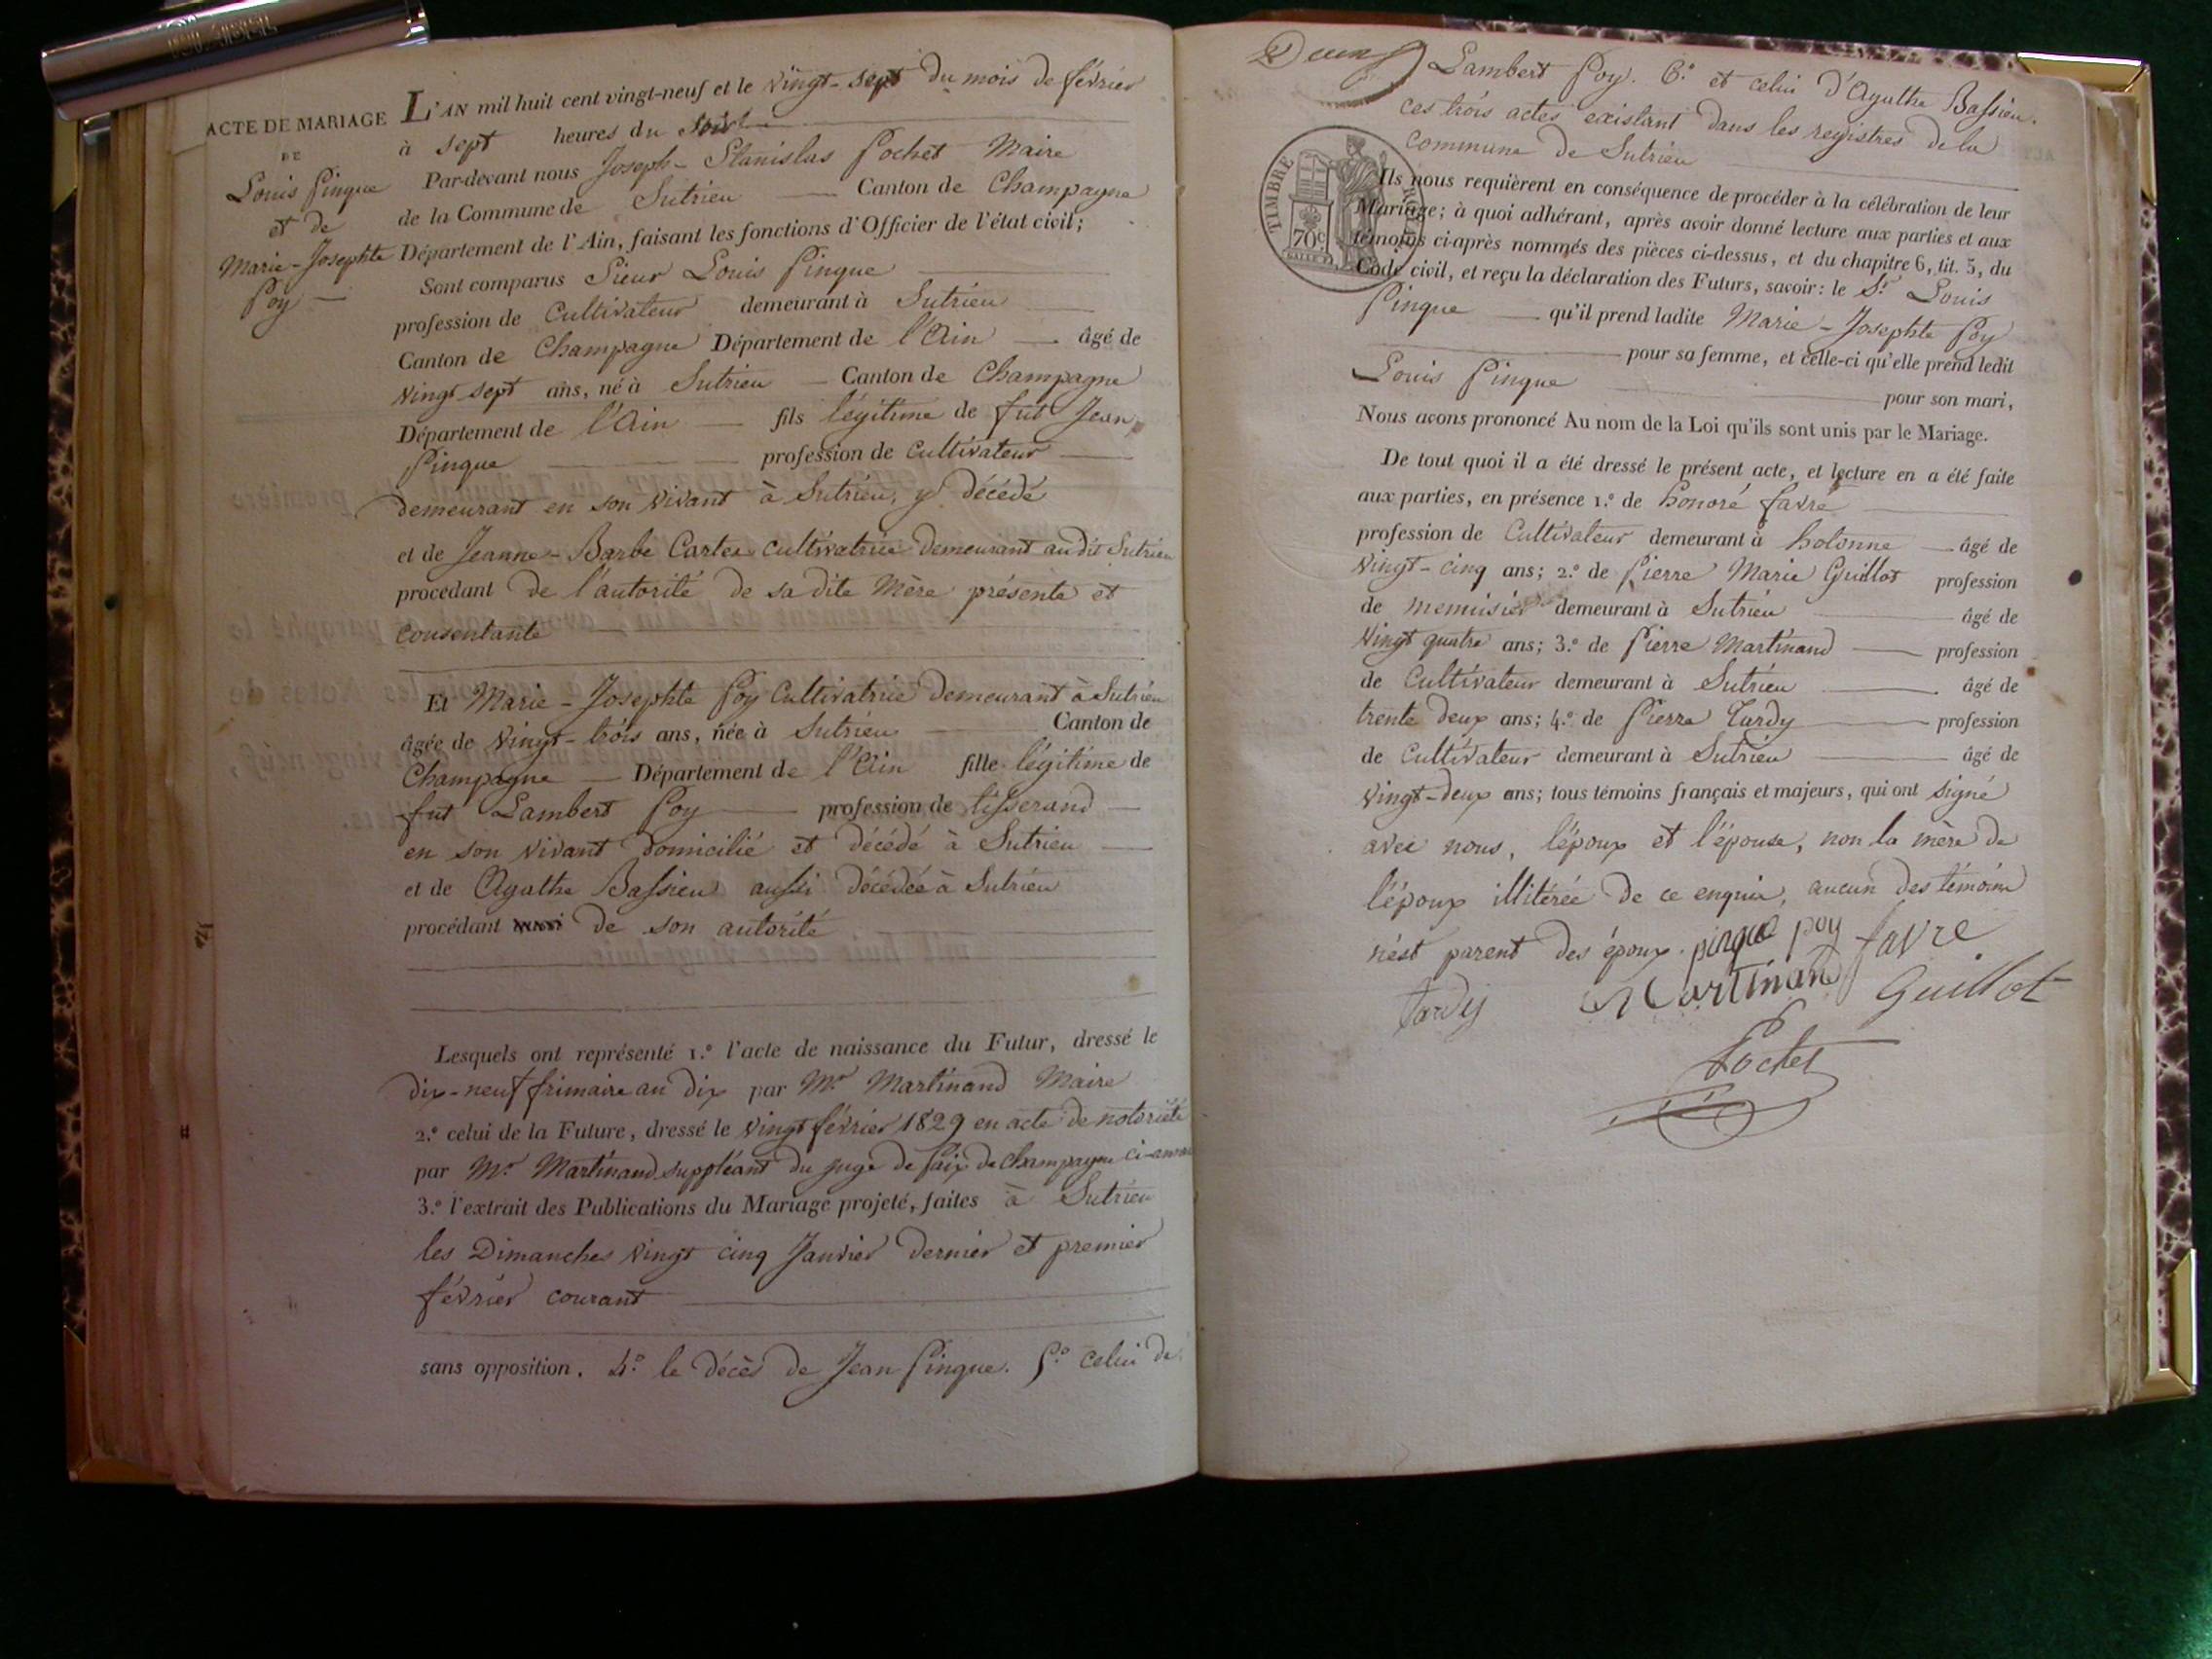 ACTE DE MARIAGE
DE
Louis Pingue
et de
Marie-Josephte
Poy
L'AN mil huit cent vingt-neuf et le vingt-sept du mois de février
à sept heures du soir
Par-devant nous Joseph-Stanislas Pochet Maire
de la Commune de Sutrieu Canton de Champagne
Département de l'Ain, faisant les fonctions d'Officier de l'état civil;
Sont comparus Sieur Louis Pingue
profession de Cultivateur demeurant à Sutrieu
Canton de Champagne Département de l'Ain âgé de
vingt sept ans, né à Sutrieu Canton de Champagne
Département de l'Ain fils légitime de fut Jean
Pingue profession de Cultivateur
demeurant en son vivant à Sutrieu, y décédé
et de Jeanne-Barbe Cartes cultivatrice demeurant audit Sutrieu
procédant de l'autorité de sa dite Mère présente et
consentante
Et Marie-Josephte Poy Cultivatrice demeurant à Sutrieu
âgée de vingt-trois ans, née à Sutrieu Canton de
Champagne Département de l'Ain fille légitime de
fut Lambert Poy profession de tisserand
en son vivant domicilié et décédé à Sutrieu
et de Agathe Bassieu aussi décédée à Sutrieu
procédant de son autorité
Lesquels ont représenté 1.º l'acte de naissance du Futur, dressé le
dix-neuf frimaire an dix par Mr Martinand Maire
2.º celui de la Future, dressé le vingt février 1829 en acte de notoriété
par Mr Martinand suppléant du juge de paix de Champagne ci-annexé
3.º l'extrait des Publications du Mariage projeté, faites à Sutrieu
les Dimanches vingt cinq Janvier dernier et premier
février courant
sans opposition. 4.º le décès de Jean Pingue. 5.º celui de
Deux
Lambert Poy. 6.º et celui d'Agathe Bassieu.
ces trois actes existant dans les registres de la
commune de Sutrieu
TIMBRE ROYAL
70c.
Ils nous requièrent en conséquence de procéder à la célébration de leur
Mariage; à quoi adhérant, après avoir donné lecture aux parties et aux
témoins ci-après nommés des pièces ci-dessus, et du chapitre 6, tit. 5, du
Code civil, et reçu la déclaration des Futurs, savoir: le Sr Louis
Pingue qu'il prend ladite Marie-Josephte Poy
pour sa femme, et celle-ci qu'elle prend ledit
Louis Pingue
pour son mari,
Nous avons prononcé Au nom de la Loi qu'ils sont unis par le Mariage.
De tout quoi il a été dressé le présent acte, et lecture en a été faite
aux parties, en présence 1.º de honoré favre
profession de Cultivateur demeurant à holonne âgé de
vingt-cinq ans; 2.º de Pierre Marie Guillot profession
de menuisier demeurant à Sutrieu âgé de
vingt quatre ans; 3.º de Pierre Martinand profession
de Cultivateur demeurant à Sutrieu âgé de
trente deux ans; 4.º de Pierre Tardy profession
de Cultivateur demeurant à Sutrieu âgé de
vingt-deux ans; tous témoins français et majeurs, qui ont signé
avec nous, l'époux et l'épouse, non la mère de
l'époux illitérée de ce enquise, aucun des témoins
n'est parent des époux. pingue poy favre
tardy Martinand Guillot
Pochet